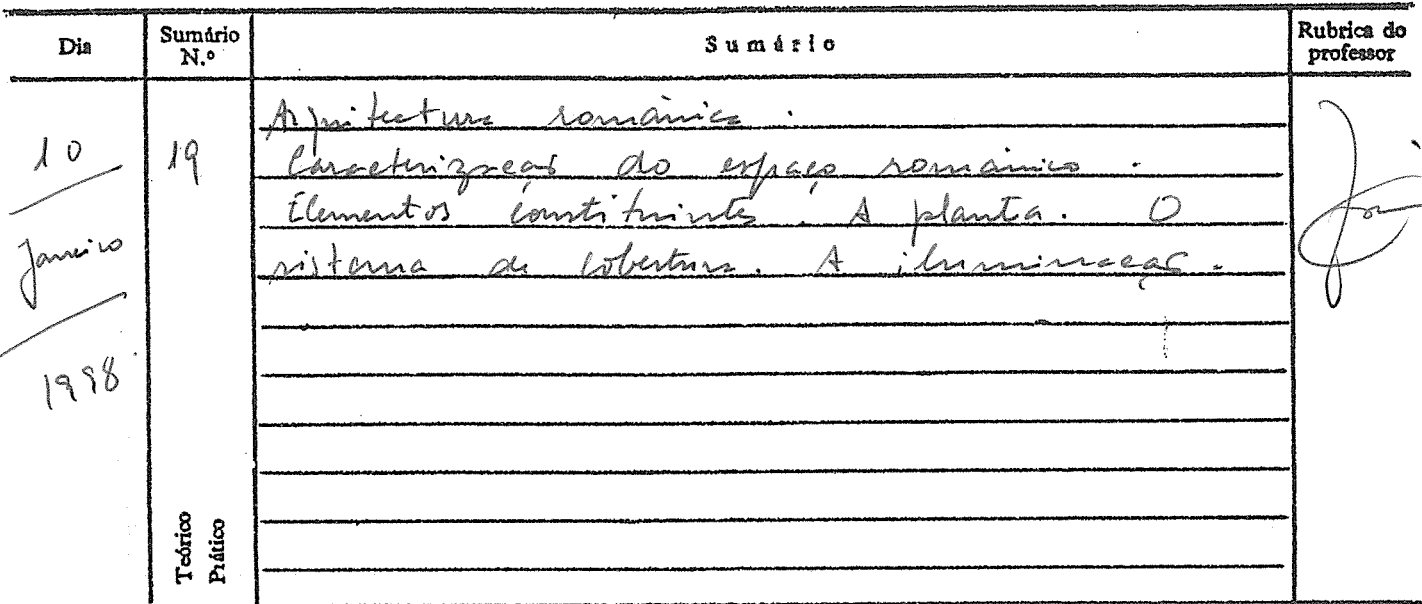 Dia
Sumário N.º
Sumário
Rubrica do professor
10
Janeiro
1998
19
Arquitectura românica.
Caracterização do espaço românico.
Elementos constituintes. A planta. O
sistema de cobertura. A iluminação.
Teórico
Prático